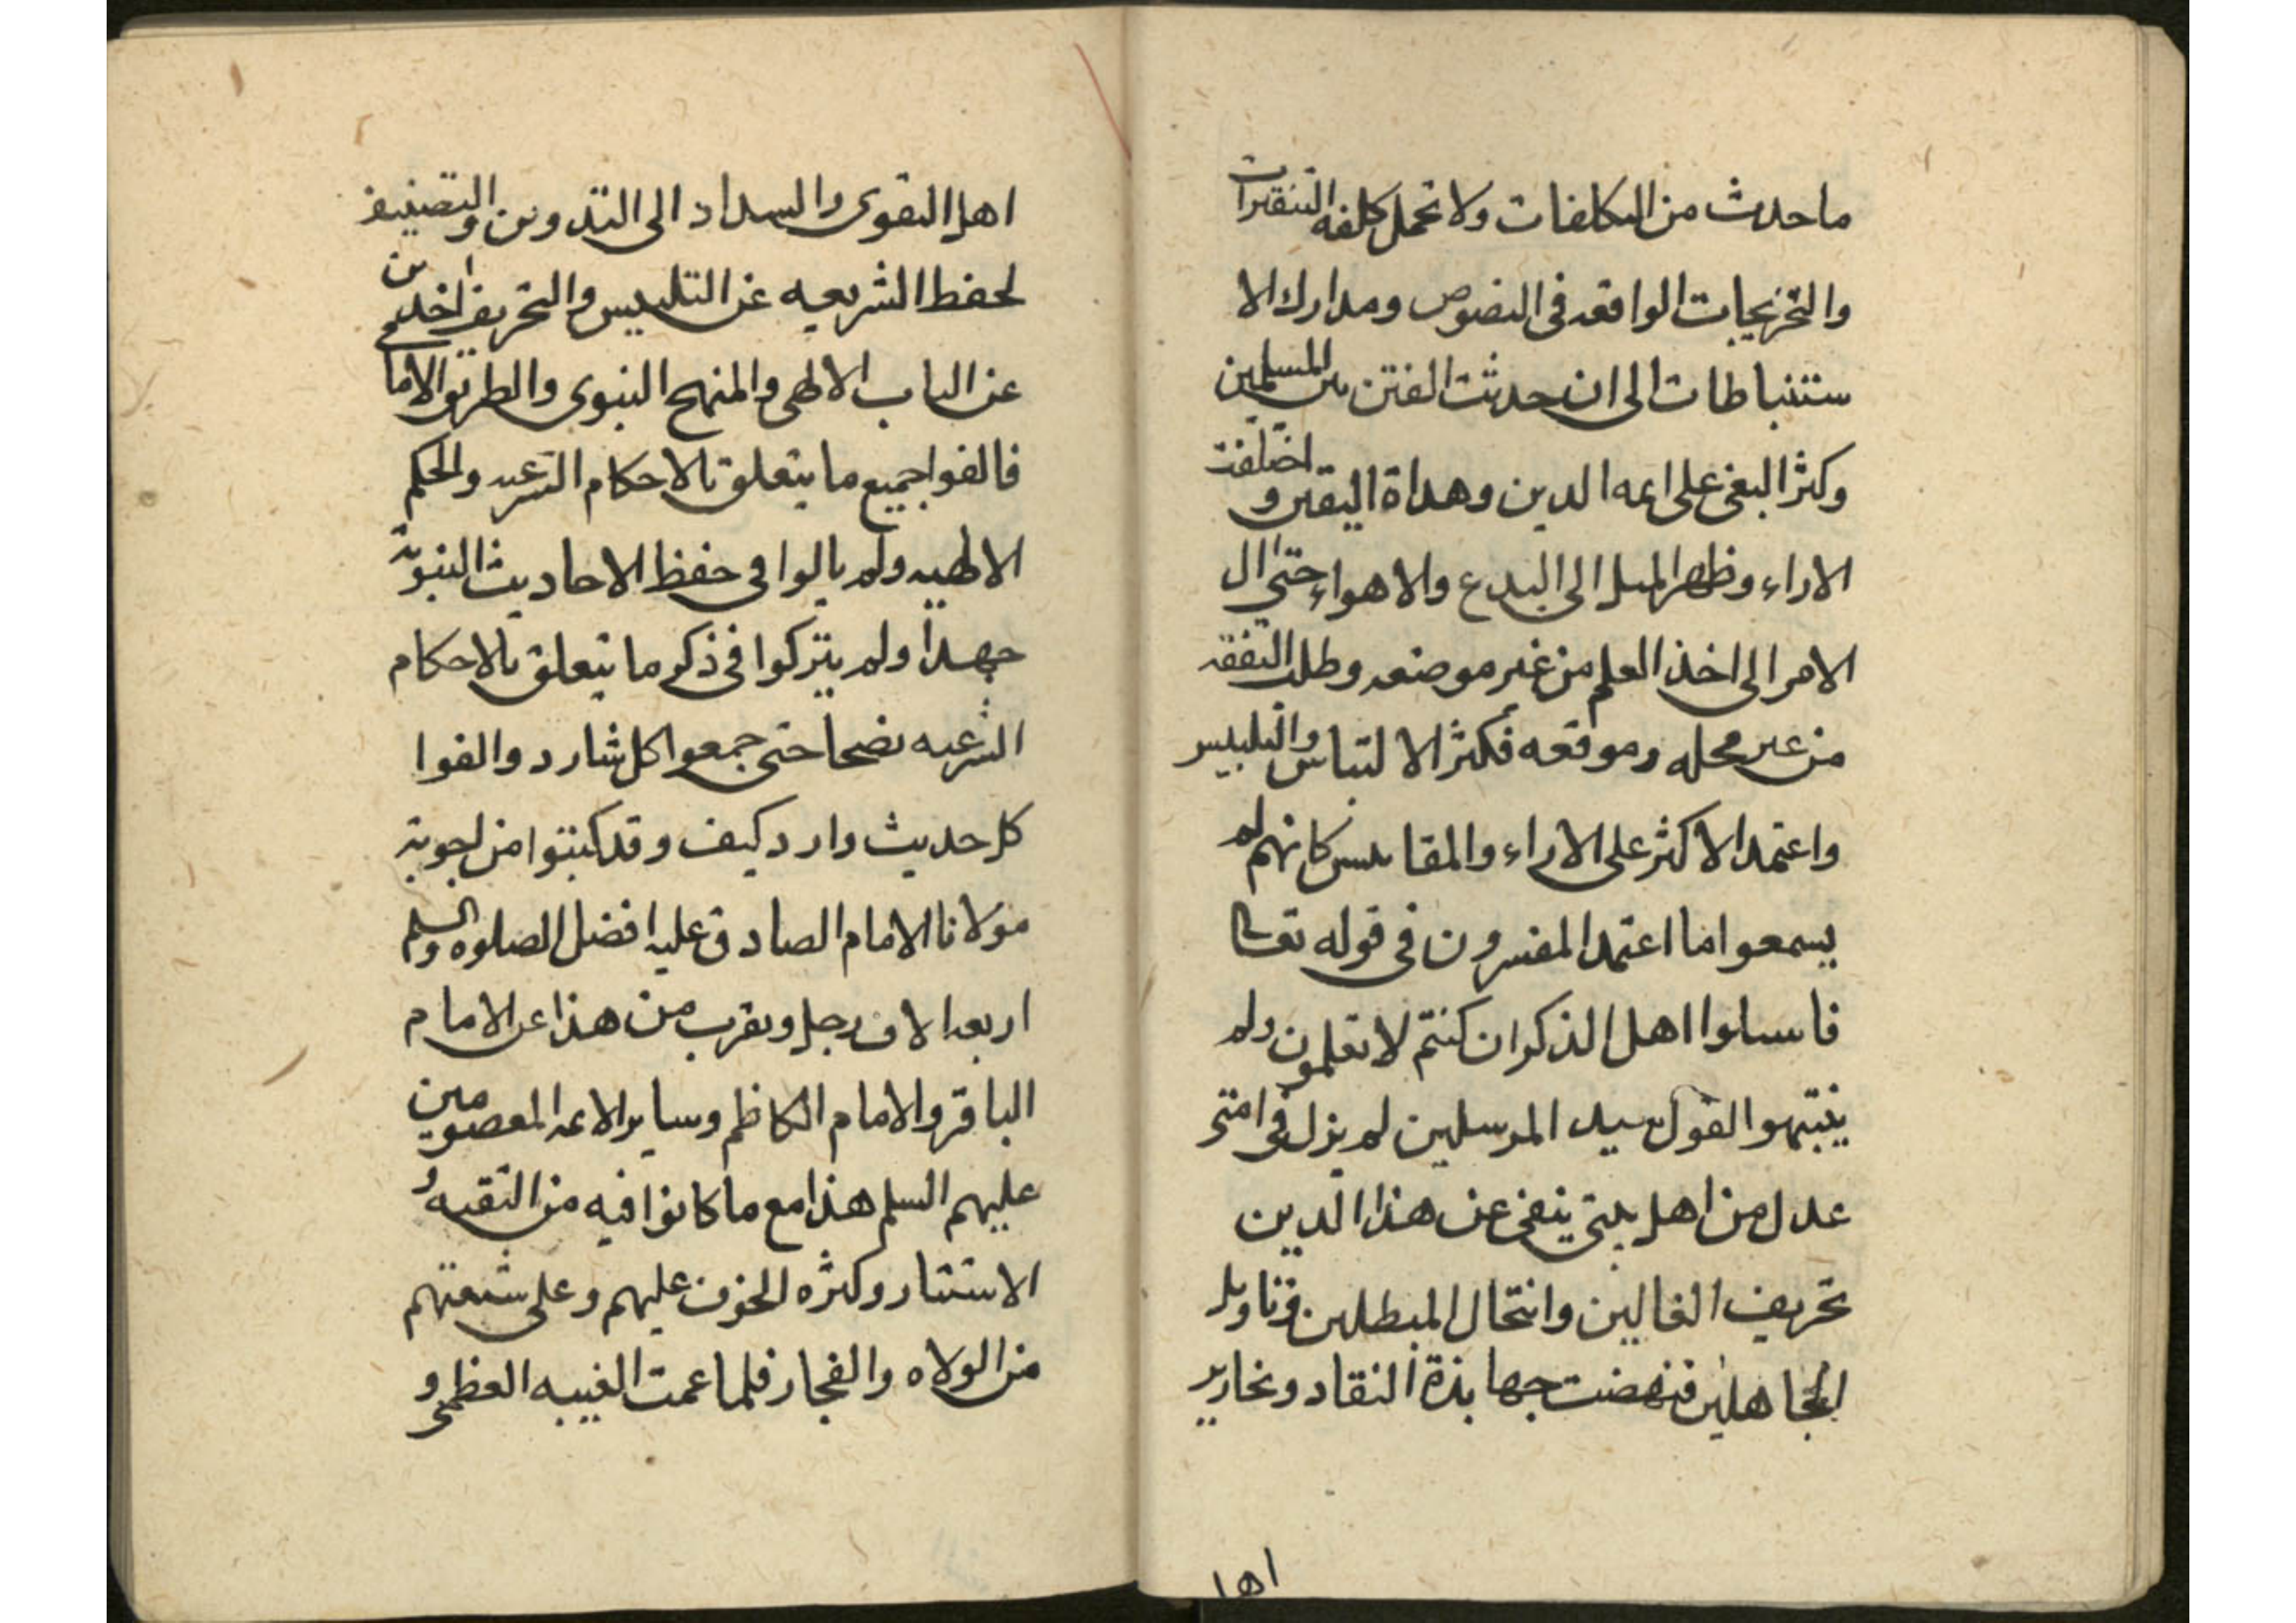 ما حدث من التكلفات ولا تحمل كلفه التنقيرات
والتخريجات الواقعه في النصوص ومدارك الا
ستنباطات الى ان حدثت الفتن بين المسلمين
وكثر البغى على ايمه الدين وهداة اليقين و اختلفت
الاراء وظهر الميل الى البدع والاهواء حتى ال
الامر الى اخذ العلم من غير موضعه وطلب التفقه
من غير محله وموقعه فكثر الالتباس والتلبيس
واعتمد الاكثر على الاراء والمقاييس كانهم لم
يسمعوا ما اعتمد المفسرون في قوله تعالى
فاسئلوا اهل الذكر ان كنتم لا تعلمون ولم
ينتبهوا لقول سيد المرسلين لم يزل في امتى
عدل من اهل بيتي ينفى عن هذا الدين
تحريف الغالين وانتحال المبطلين وتاويل
الجاهلين فنهضت جهابذة النقاد ونحارير
اهل
اهل التقوى والسداد الى التدوين والتصنيف
لحفظ الشريعه عن التلبيس والتحريف اخذين
عن الباب الالهى والمنهج النبوى والطريق الامامى
فالفوا جميع ما يتعلق بالاحكام الشرعيه والحكم
الالهيه ولم يالوا في حفظ الاحاديث النبوية
جهدا ولم يتركوا في ذكر ما يتعلق بالاحكام
الشرعيه نصحا حتى جمعوا كل شارد والفوا
كل حديث وارد كيف وقد كتبوا من اجوبة
مولانا الامام الصادق عليه افضل الصلوه والسلم
اربعه الاف رجل ويقرب من هذا عن الامام
الباقر والامام الكاظم وساير الائمه المعصومين
عليهم السلم هذا مع ما كانوا فيه من التقيه و
الاستتار وكثره الخوف عليهم وعلى شيعتهم
من الولاه والفجار فلما عمت الغيبه العظمى و